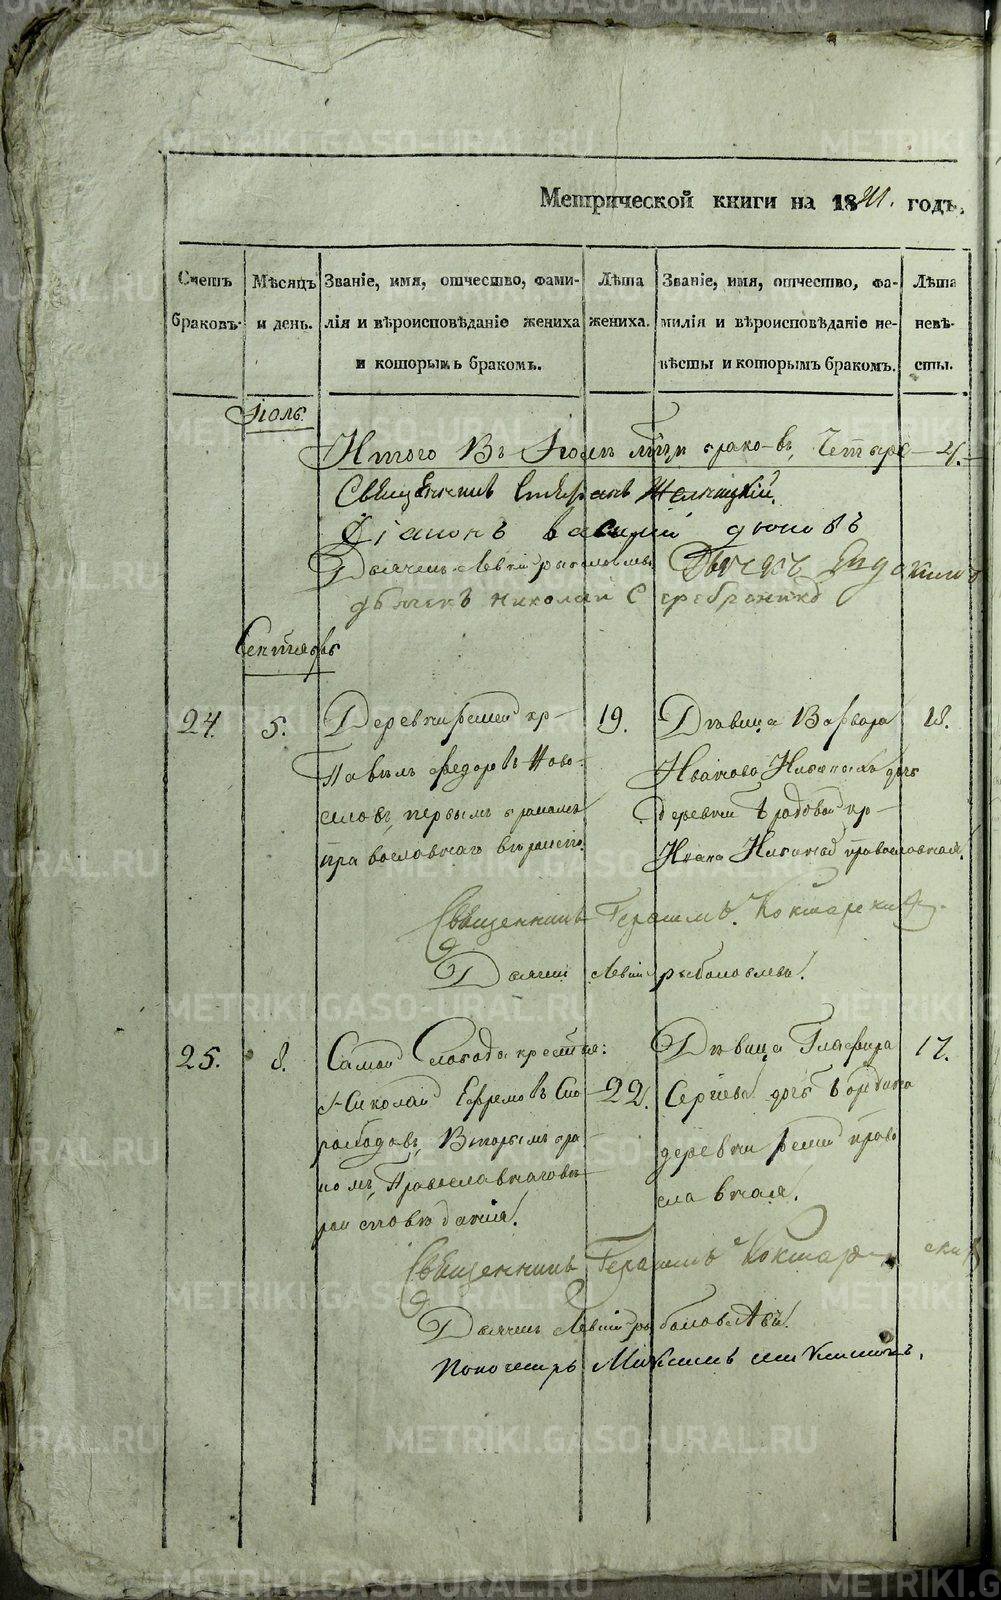 Метрической книги на 1841. годъ.
Счетъ браковъ.
Мѣсяцъ и день.
Званіе, имя, отчество, фами-
лія и вѣроисповѣданіе жениха
и которымъ бракомъ.
Лѣта
жениха.
Званіе, имя, отчество, фа-
милія и вѣроисповѣданіе не-
вѣсты и которымъ бракомъ.
Лѣта
невѣ-
сты.
Іюль
Итого Въ Іюлѣ браковъ, Четыре — 4.
Священникъ Стефанъ
Діаконъ Василій
Дьячекъ Левъ Дьячекъ
дьячекъ Николай Серебрениковъ
Сентябрь
24. 5.
Деревни кр—
Павелъ Федоровъ Ново-
селовъ, первымъ бракомъ
православнаго вѣроисп.
19.
Дѣвица Варвара
Иванова дочь
деревни кр—
Ивана православная.
18.
Священникъ Герасимъ Кокшарскій
Дьячекъ Левъ Рыболовлевъ.
25. 8.
Самой Слободы крестья:
Николай Ефремовъ Ско-
роходовъ, Вторымъ бра-
комъ, Православнаго вѣ-
роисповѣданія.
22.
Дѣвица Глафира
Сергіева дочь Бордина
деревни право
славная.
17.
Священникъ Герасимъ Кокшарскій
Дьячекъ Левъ Рыболовлевъ.
Пономарь Максимъ
METRIKI.GASO-URAL.RU